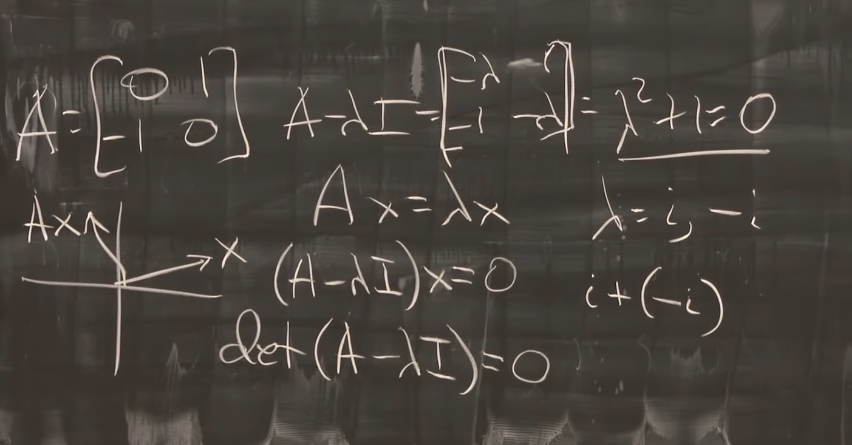 A = [0 1
-1 0]
A - λI = [-λ
-1 -λ] = λ² + 1 = 0
Ax = λx
λ = i, -i
Ax
x
(A - λI)x = 0
i + (-i)
det(A - λI) = 0